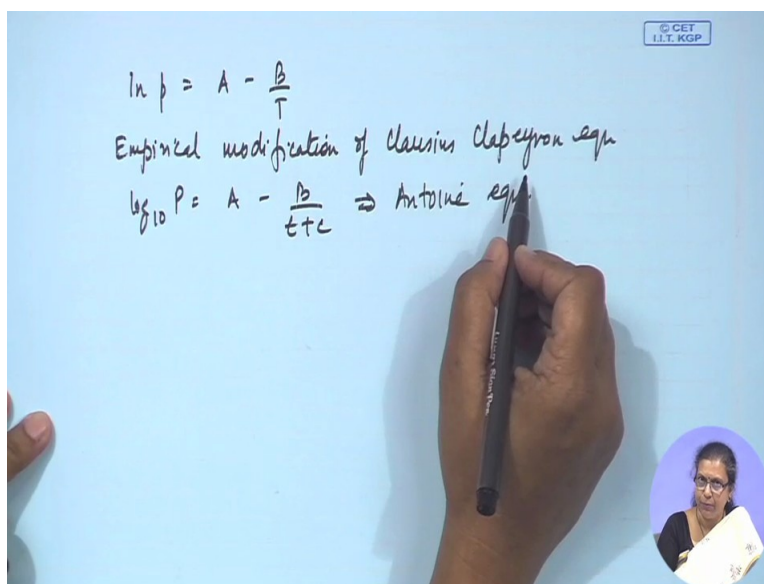 © CET
I.I.T. KGP
ln p = A - B/T
Empirical modification of Clausius Clapeyron eqn
log10 P = A - B/t+c ⇒ Antoine eqn.